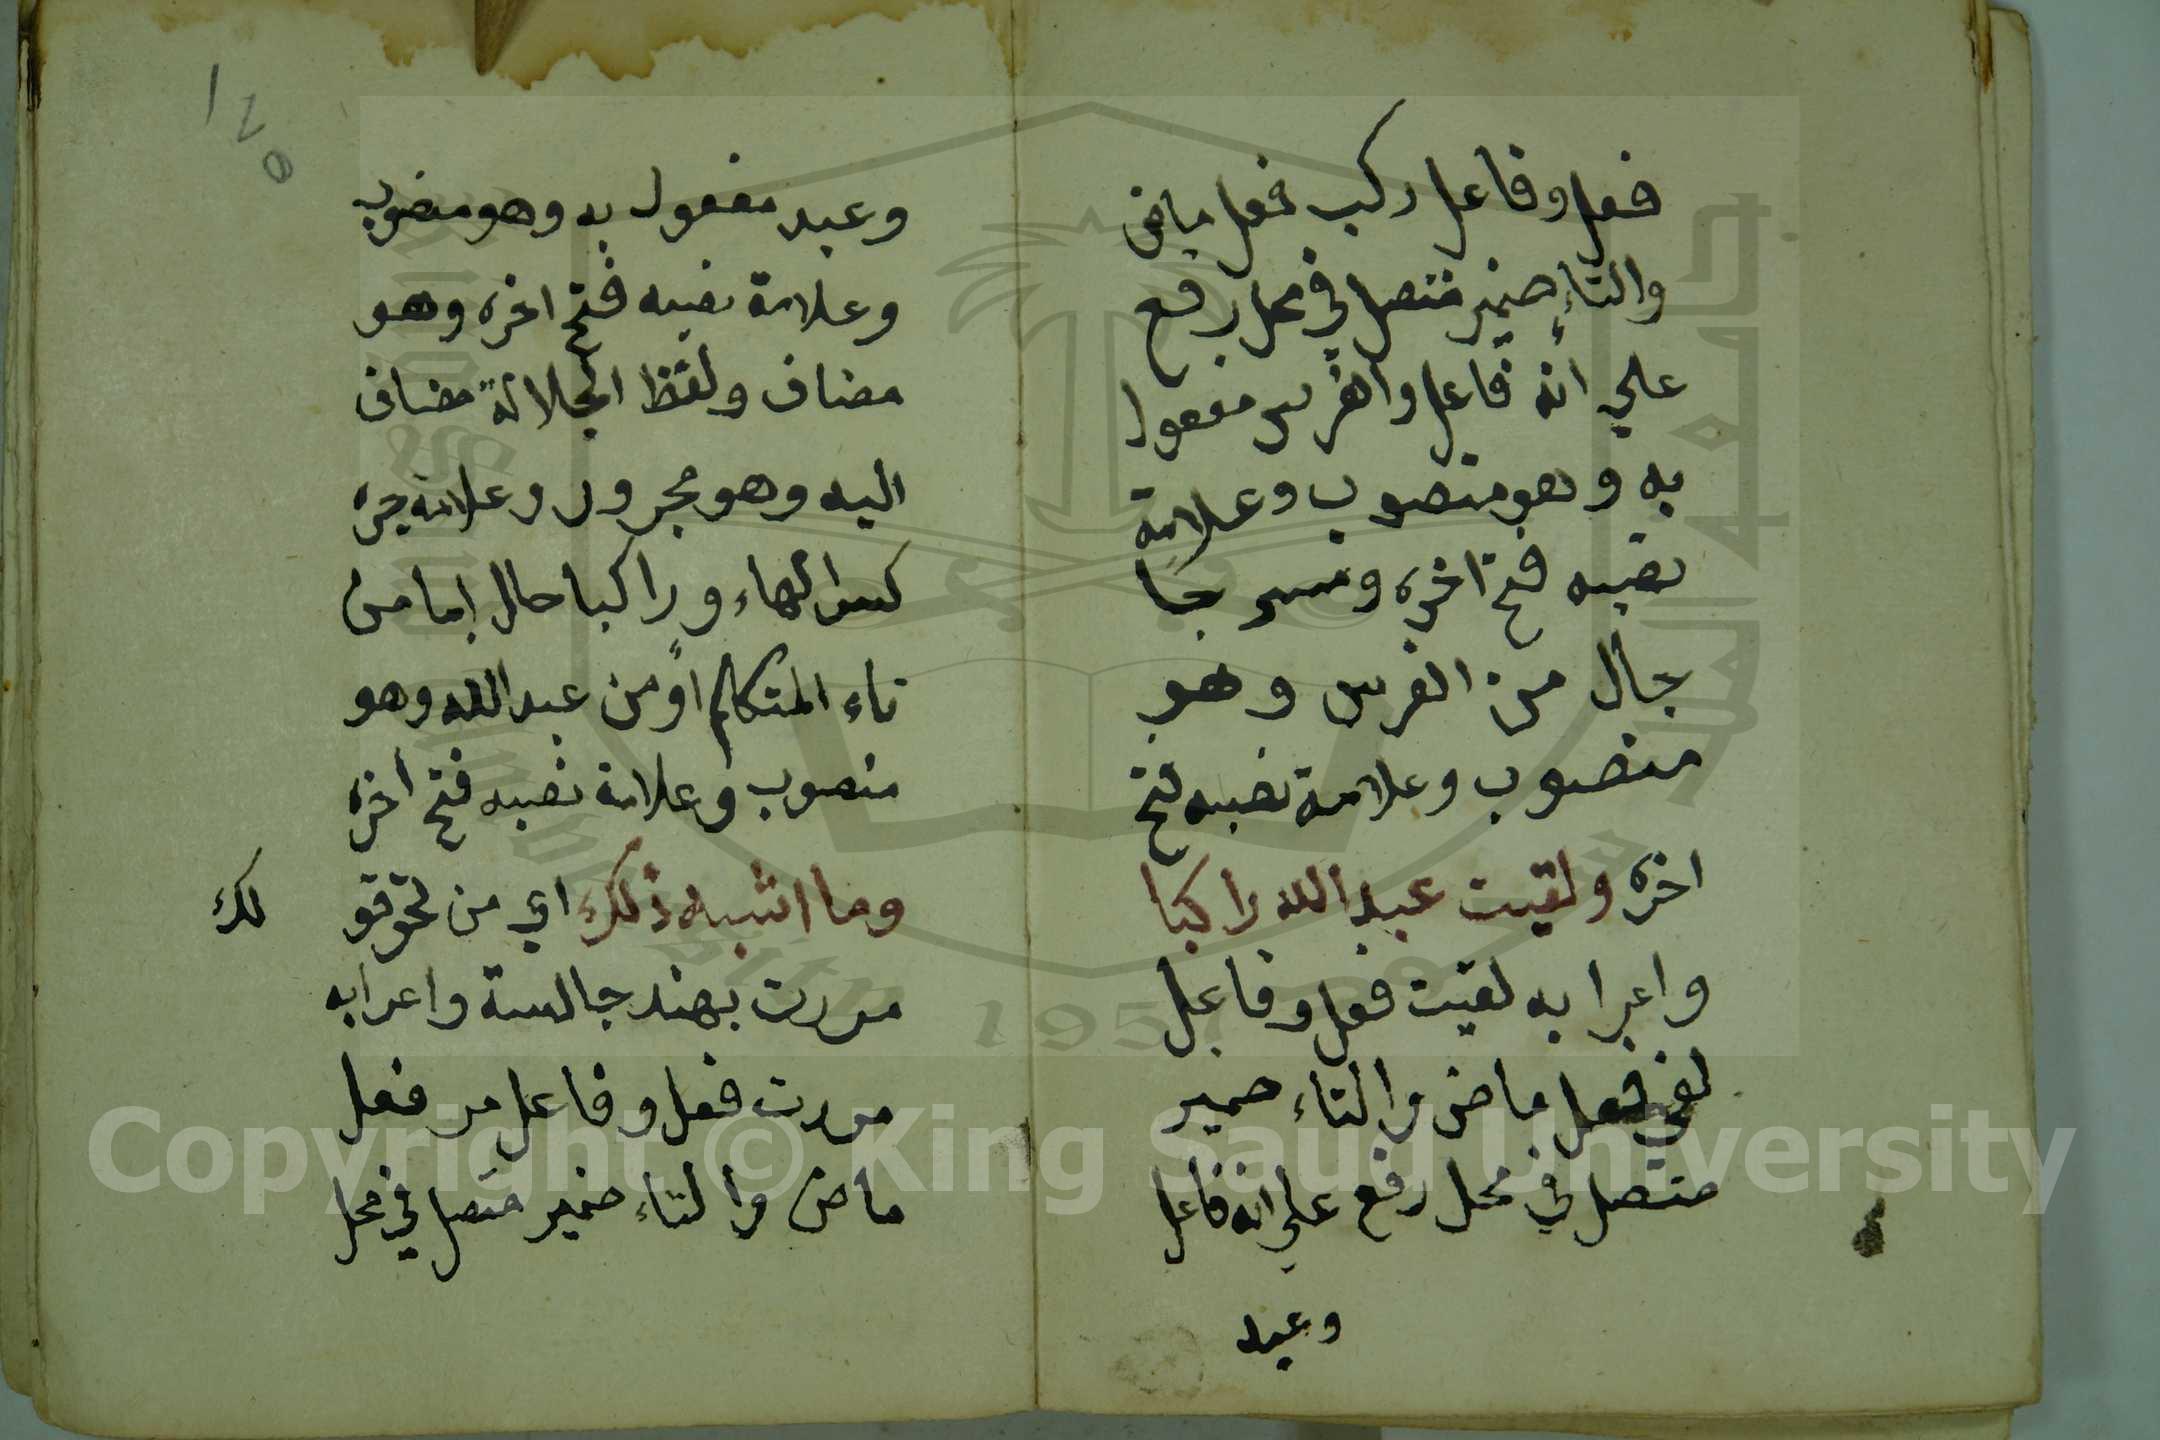 فعل وفاعل ركب فعل ماض
والتاء ضمير متصل في محل رفع
علي انه فاعل والفرس مفعول
به وهو منصوب وعلامة
نصبه فتح اخره ومسرجا
حال من الفرس وهو
منصوب وعلامة نصبه فتح
اخره ولقيت عبد الله راكبا
واعرابه لقيت فعل وفاعل
لقي فعل ماض والتاء ضمير
متصل في محل رفع علي انه فاعل
وعبد
120
وعبد مفعول به وهو منصوب
وعلامة نصبه فتح اخره وهو
مضاف ولفظ الجلالة مضاف
اليه وهو مجرور وعلامة جره
كسر الهاء وراكبا حال اما من
تاء المتكلم او من عبد الله وهو
منصوب وعلامة نصبه فتح اخره
وما اشبه ذلك اي من نحو قو
لك
مررت بهند جالسة واعرابه
مررت فعل وفاعل مر فعل
ماض والتاء ضمير متصل في محل
1957
Copyright © King Saud University